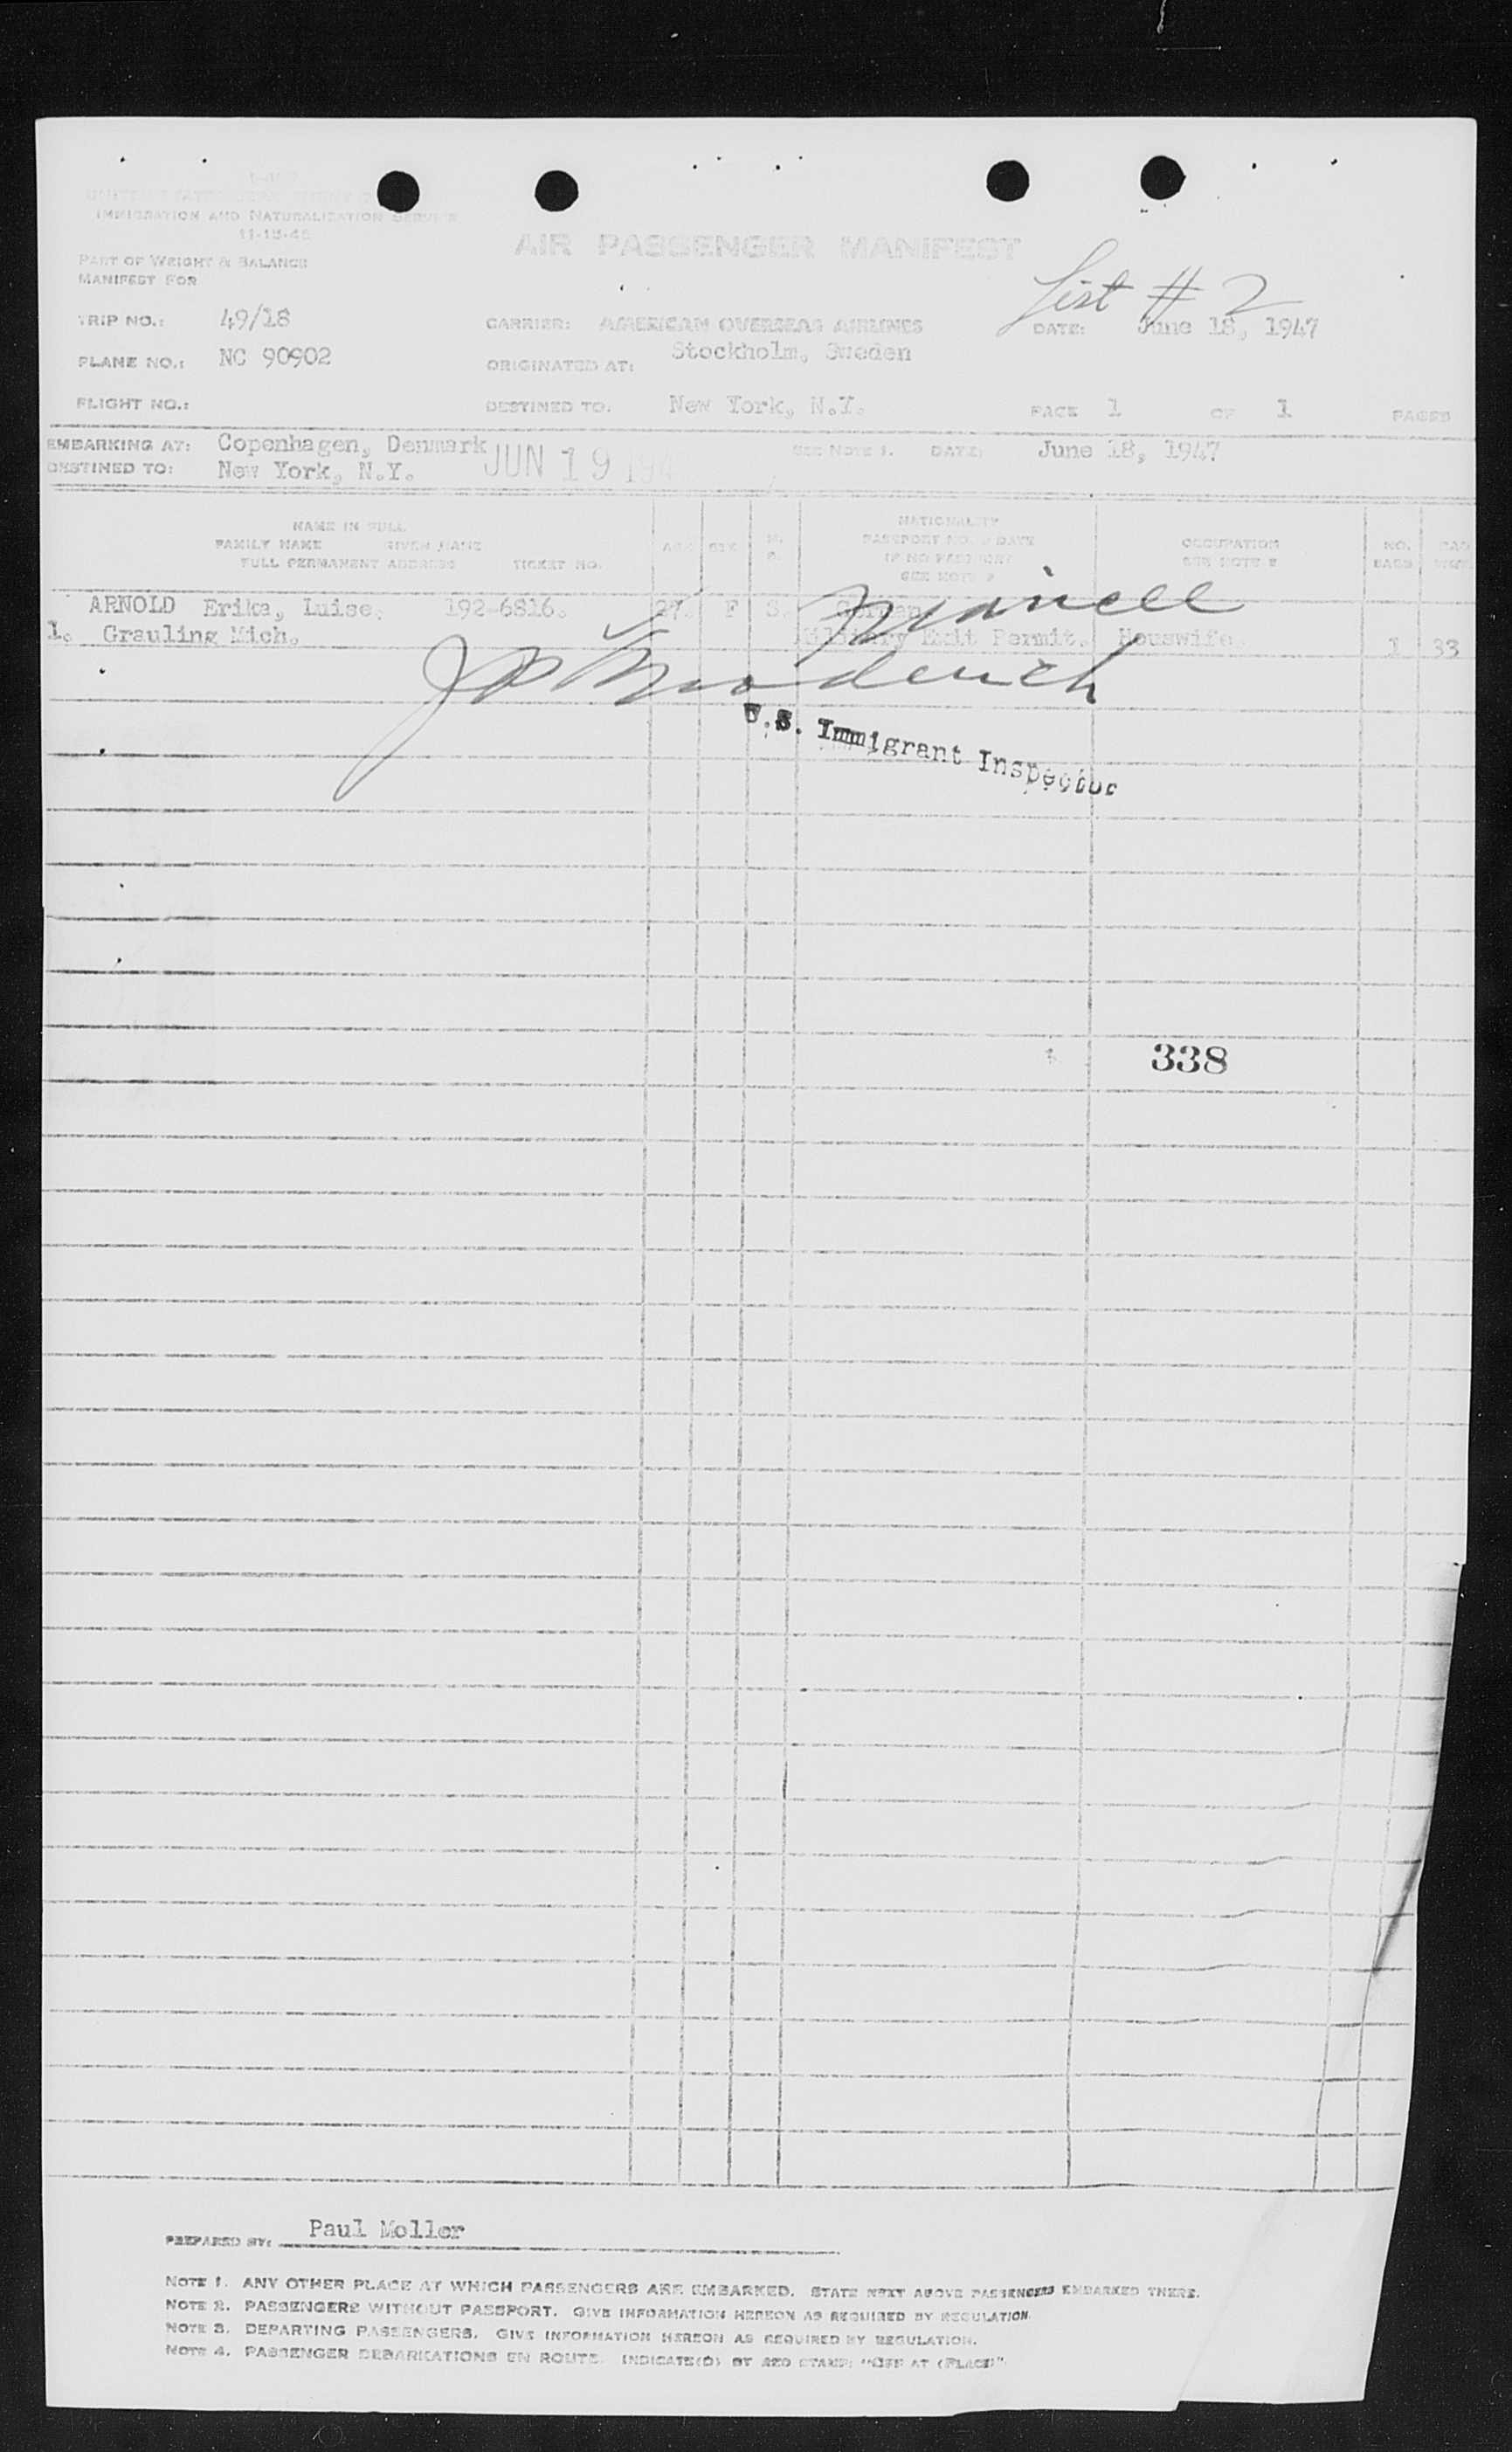 IMMIGRATION AND NATURALIZATION SERVICE
11-15-45
AIR PASSENGER MANIFEST
PART OF WEIGHT & BALANCE
MANIFEST FOR
List # 2
TRIP NO.: 49/18 CARRIER: AMERICAN OVERSEAS AIRLINES DATE: June 18, 1947
PLANE NO.: NC 90902 ORIGINATED AT: Stockholm, Sweden
FLIGHT NO.: DESTINED TO: New York, N.Y. PAGE 1 OF 1 PAGES
EMBARKING AT: Copenhagen, Denmark SEE NOTE 1. DATE: June 18, 1947
DESTINED TO: New York, N.Y. JUN 19 194
NAME IN FULL NATIONALITY
FAMILY NAME GIVEN NAME AGE SEX M. PASSPORT NO. & DATE OCCUPATION NO.
FULL PERMANENT ADDRESS TICKET NO. S. IF NO PASSPORT SEE NOTE BAGS
SEE NOTE 2
ARNOLD Erika, Luise. 192-6816. 27. F S. German
1. Grauling Mich. Military Exit Permit. Houswife. 1 33
U.S. Immigrant Inspector
338
PREPARED BY: Paul Moller
NOTE 1. ANY OTHER PLACE AT WHICH PASSENGERS ARE EMBARKED. STATE NEXT ABOVE PASSENGERS EMBARKED THERE.
NOTE 2. PASSENGERS WITHOUT PASSPORT. GIVE INFORMATION HEREON AS REQUIRED BY REGULATION.
NOTE 3. DEPARTING PASSENGERS. GIVE INFORMATION HEREON AS REQUIRED BY REGULATION.
NOTE 4. PASSENGER DEBARKATIONS EN ROUTE. INDICATE(D) BY RED STAMP: "OFF AT (PLACE)"